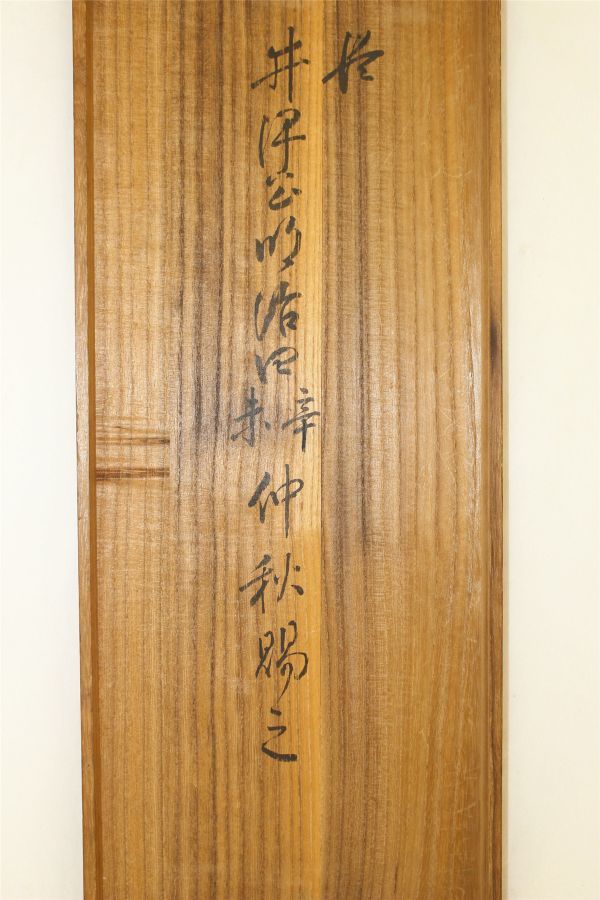 於
井 公明治四辛未仲秋賜之